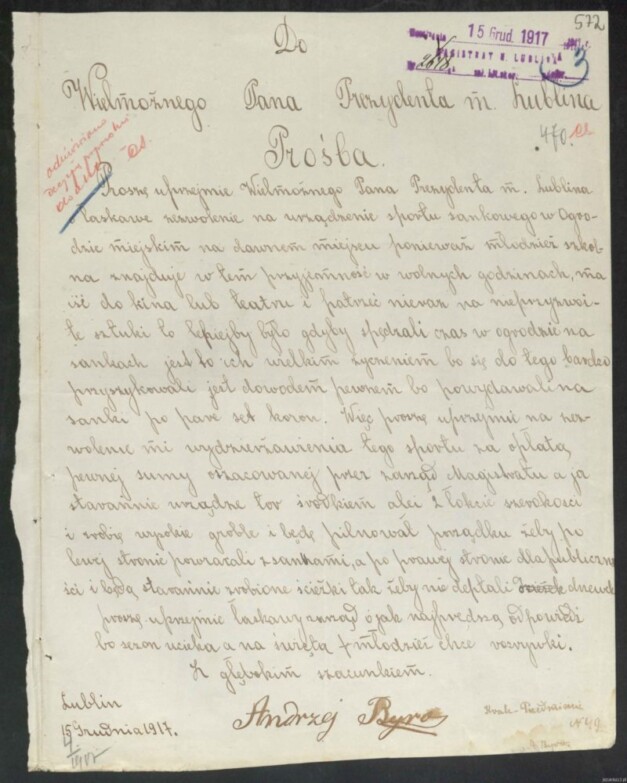 572
15 Grud. 1917
MAGISTRAT M. LUBLINA
3
Do
Wielmożnego Pana Prezydenta m. Lublina
470.
Prośba.
Proszę uprzejmie Wielmożnego Pana Prezydenta m. Lublina
o łaskawe zezwolenie na urządzenie sportu sankowego w Ogro-
dzie miejskim na dawnem miejscu ponieważ młodzież szkol-
na znajduje w tem przyjemność w wolnych godzinach, ma
iść do kina lub teatru i patrzić nieraz na nieprzyzwoi-
te sztuki to lepiejby było gdyby spędzali czas w ogrodzie na
sankach jest to ich wielkim życzeniem bo się do tego bardzo
przyszykowali jest dowodem pewnem bo powydawali na
sanki po parę set koron. Więc proszę uprzejmie na zez-
wolenie mi wydzierżawienia tego sportu za opłatą
pewnej sumy oszacowanej przez zarząd Magistratu a ja
starannie urządzę tor środkiem alei 2 łokcie szerokości
i zrobię wysokie groble i będę pilnował porządku żeby po
lewej stronie powracali z sankami, a po prawej stronie dla publiczno
ści i będą starannie zrobione ścieżki tak żeby nie deptali
proszę uprzejmie łaskawy zarząd o jak najprędszą odpowiedź
bo sezon ucieka a na święta młodzież chce rozrywki.
Z głębokim szacunkiem.
Lublin
15 Grudnia 1917.
Andrzej Byra